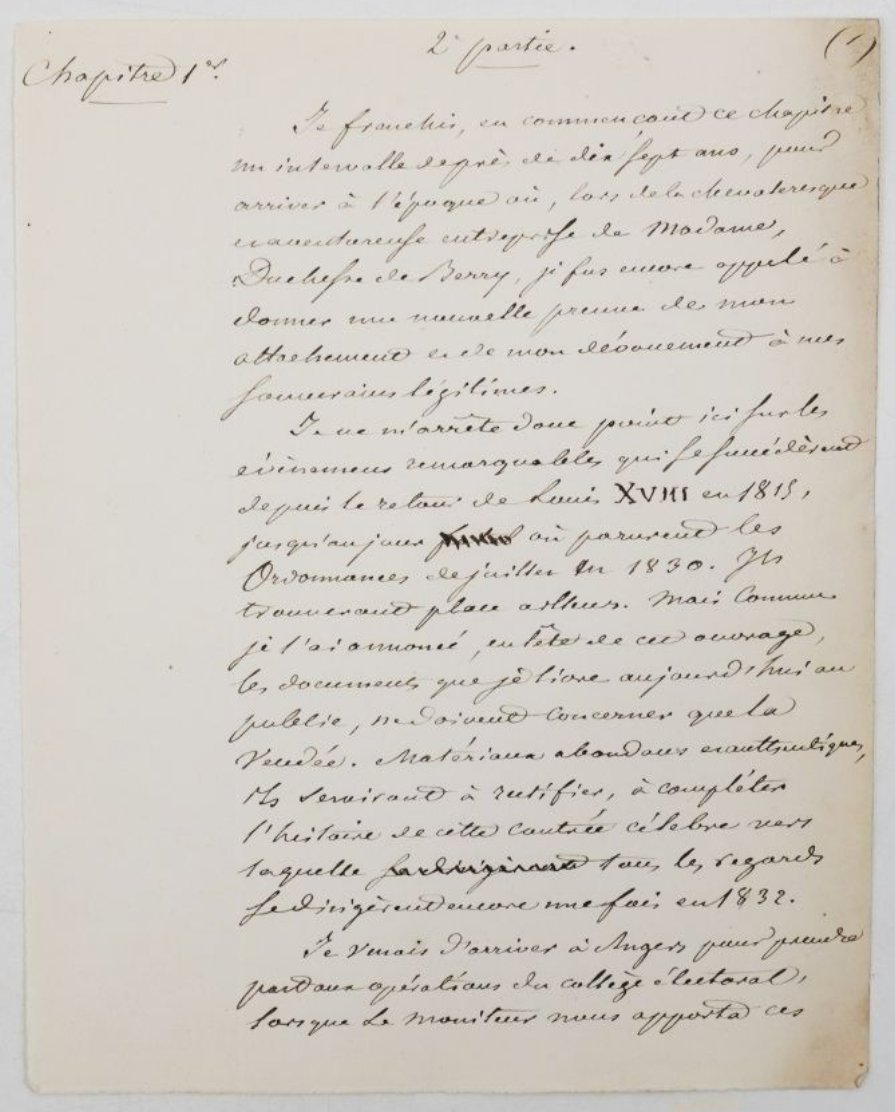 2e partie.
(1)
Chapitre 1er.
Je franchis, en commençant ce chapitre
un intervalle de près de dix sept ans, pour
arriver à l'époque où, lors de la chevaleresque
et aventureuse entreprise de Madame,
Duchesse de Berry, je fus encore appelé à
donner une nouvelle preuve de mon
attachement et de mon dévouement à mes
souverains légitimes.
Je ne m'arrête donc point ici sur les
évènemens remarquables qui se succédèrent
depuis le retour de Louis XVIII en 1815,
jusqu'au jour où parurent les
Ordonnances de juillet en 1830. Ils
trouveront place ailleurs. Mais comme
je l'ai annoncé, en tête de cet ouvrage,
les documents que je livre aujourd'hui au
public, ne doivent concerner que la
Vendée. Matériaux abondans et authentiques,
ils serviront à rectifier, à compléter
l'histoire de cette contrée célèbre vers
laquelle se dirigèrent tous les regards
se dirigèrent encore une fois en 1832.
Je venais d'arriver à Angers pour prendre
part aux opérations du collège électoral,
lorsque Le Moniteur nous apporta ces